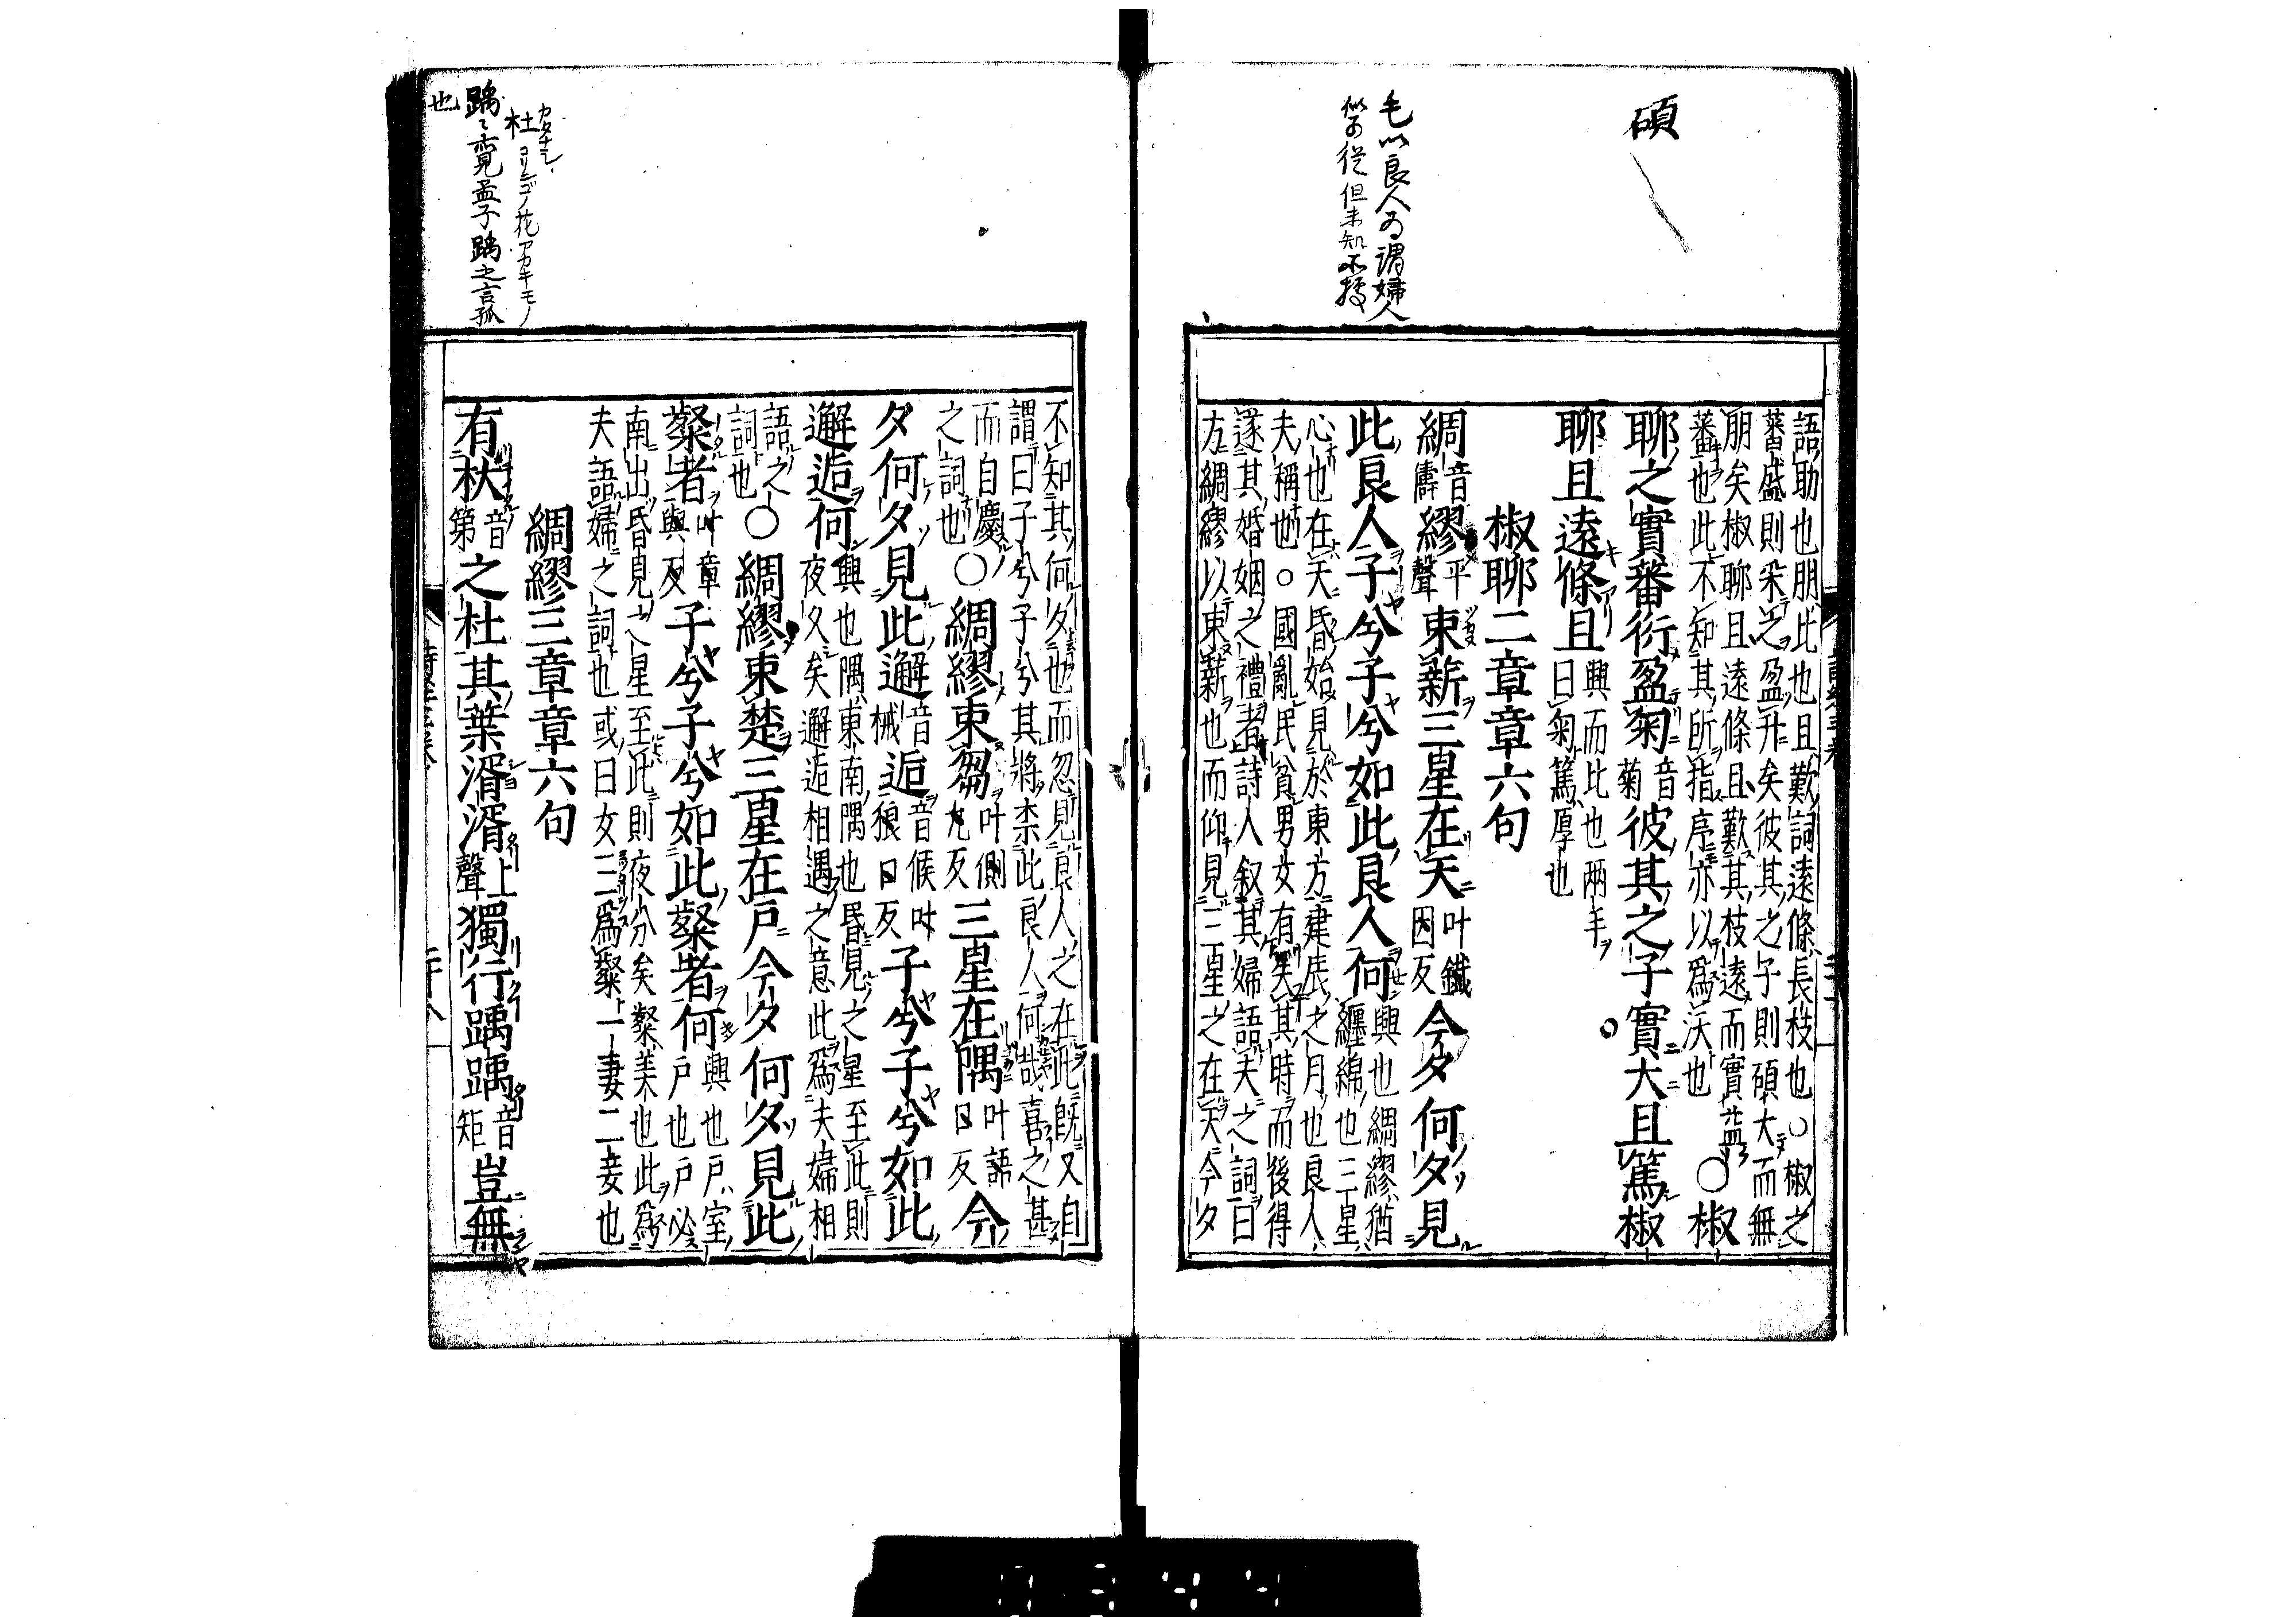 碩
毛以良人為謂婦人
似可従但未知所拠
語助也朋比也且歎詞遠條長枝也○椒之
蕃盛則采之盈升矣彼其之子則碩大而無
朋矣椒聊且遠條且歎其枝遠而實益
蕃也此不知其所指序亦以爲沃也○椒
聊之實蕃衍盈匊音菊彼其之子實大且篤椒
聊且遠條且興而比也兩手曰匊篤厚也
椒聊二章章六句
綢音儔繆平聲束薪三星在天叶鐵因反今夕何夕見
此良人子兮子兮如此良人何興也綢繆猶纏綿也三星
心也在天昏始見於東方建辰之月也良人
夫稱也○國亂民貧男女有失其時而後得
遂其婚姻之禮者詩人叙其婦語夫之詞曰
方綢繆以束薪也而仰見三星之在天今夕
不知其何夕也而忽見良人之在此既又自
謂曰子兮子兮其將柰此良人何哉喜之甚
而自慶之詞也○綢繆束芻叶側九反三星在隅叶語口反今
夕何夕見此邂音械逅音候叶狼口反子兮子兮如此
邂逅何興也隅東南隅也昏見之星至此則夜久矣邂逅相遇之意此爲夫婦相
語之詞也○綢繆束楚三星在戶今夕何夕見此
粲者叶章與反子兮子兮如此粲者何興也戶室戶也戶必
南出昏見之星至此則夜分矣粲美也此爲
夫語婦之詞也或曰女三爲粲一妻二妾也
綢繆三章章六句
有杕音第之杜其葉湑湑上聲獨行踽踽音矩豈無
杜コリンゴノ花アカキモノ
踽〻亦見孟子踽之言孤
也